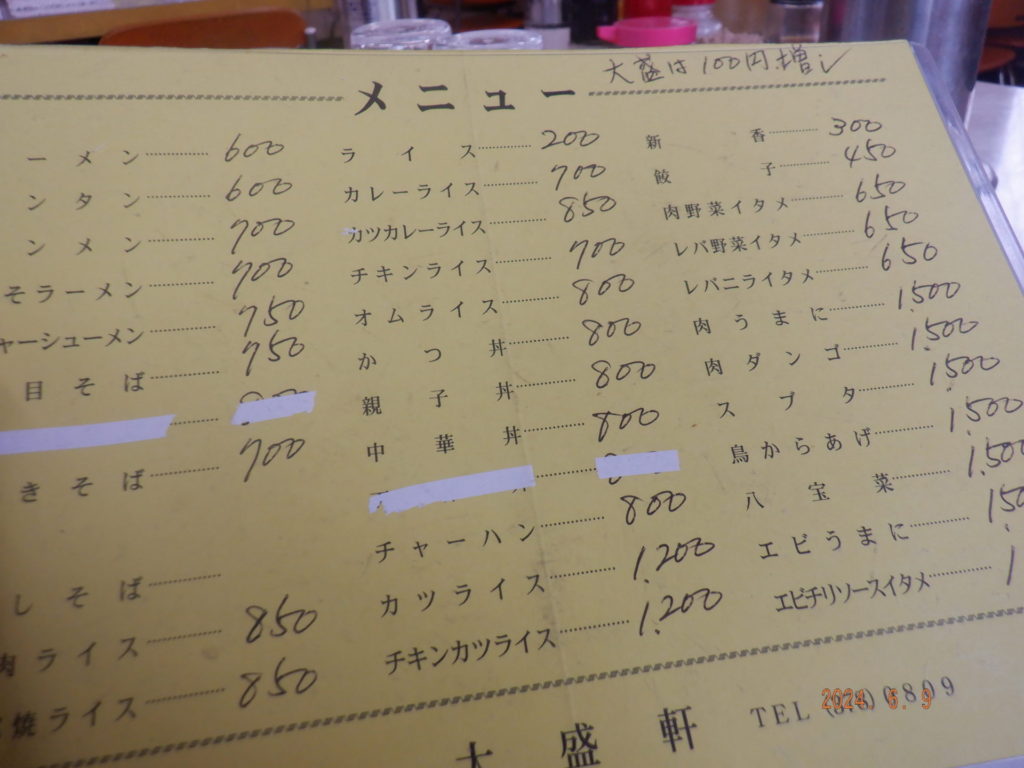 大盛は100円増し
メニュー
ーメン 600
ンタン 600
ンメン 700
そラーメン 700
ャーシューメン 750
目そば 750
きそば 700
しそば
肉ライス 850
焼ライス 850
ライス 200
カレーライス 700
カツカレーライス 850
チキンライス 700
オムライス 800
かつ丼 800
親子丼 800
中華丼 800
チャーハン 800
カツライス 1,200
チキンカツライス 1,200
新香 300
餃子 450
肉野菜イタメ 650
レバ野菜イタメ 650
レバニライタメ 650
肉うまに 1,500
肉ダンゴ 1,500
スブタ 1,500
鳥からあげ 1,500
八宝菜 1,500
エビうまに 150
エビチリソースイタメ 1
大盛軒 TEL 0809
2024 6. 9